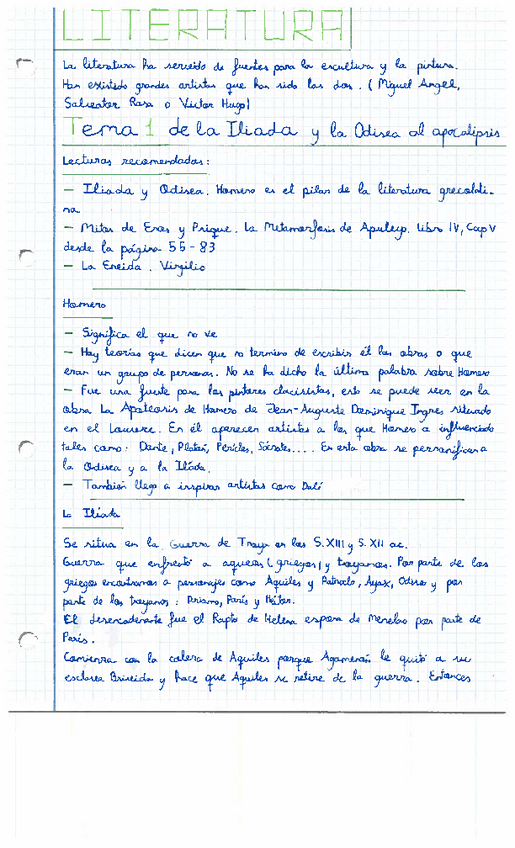 LITERATURA
La literatura ha servido de fuentes para la escultura y la pintura.
Han existido grandes artistas que han sido las dos. (Miguel Angel,
Salvator Rosa o Victor Hugo)
Tema 1 de la Iliada y la Odisea al apocalipsis
Lecturas recomendadas:
— Iliada y Odisea. Homero es el pilar de la literatura grecolati-
na
— Mitos de Eros y Psique. La Metamorfosis de Apuleyo. Libro IV, Cap V
desde la página 55-83
— La Eneida. Virgilio
Homero
— Significa el que no ve
— Hay teorías que dicen que no termino de escribir él las obras o que
eran un grupo de personas. No se ha dicho la última palabra sobre Homero
— Fue una fuente para los pintores clasicistas, esto se puede ver en la
obra La Apoteosis de Homero de Jean-Auguste Dominique Ingres situado
en el Louvre. En él aparecen artistas a los que Homero a influenciado
tales como: Dante, Platón, Pericles, Sócrates.... En esta obra se personifican a
la Odisea y a la Ilíada.
— También llego a inspirar artistas como Dalí
La Iliada
Se situa en la Guerra de Troya en los S.XIII y S.XII ac.
Guerra que enfrentó a aqueos (griegos) y troyanos. Por parte de los
griegos encontramos a personajes como Aquiles y Patroclo, Ayax, Odiseo y por
parte de los troyanos: Priamo, París y Héctor.
El desencadenante fue el Rapto de Helena esposa de Menelao por parte de
París.
Comienza con la colera de Aquiles porque Agamenón le quitó a su
esclava Briseida y hace que Aquiles se retire de la guerra. Entonces